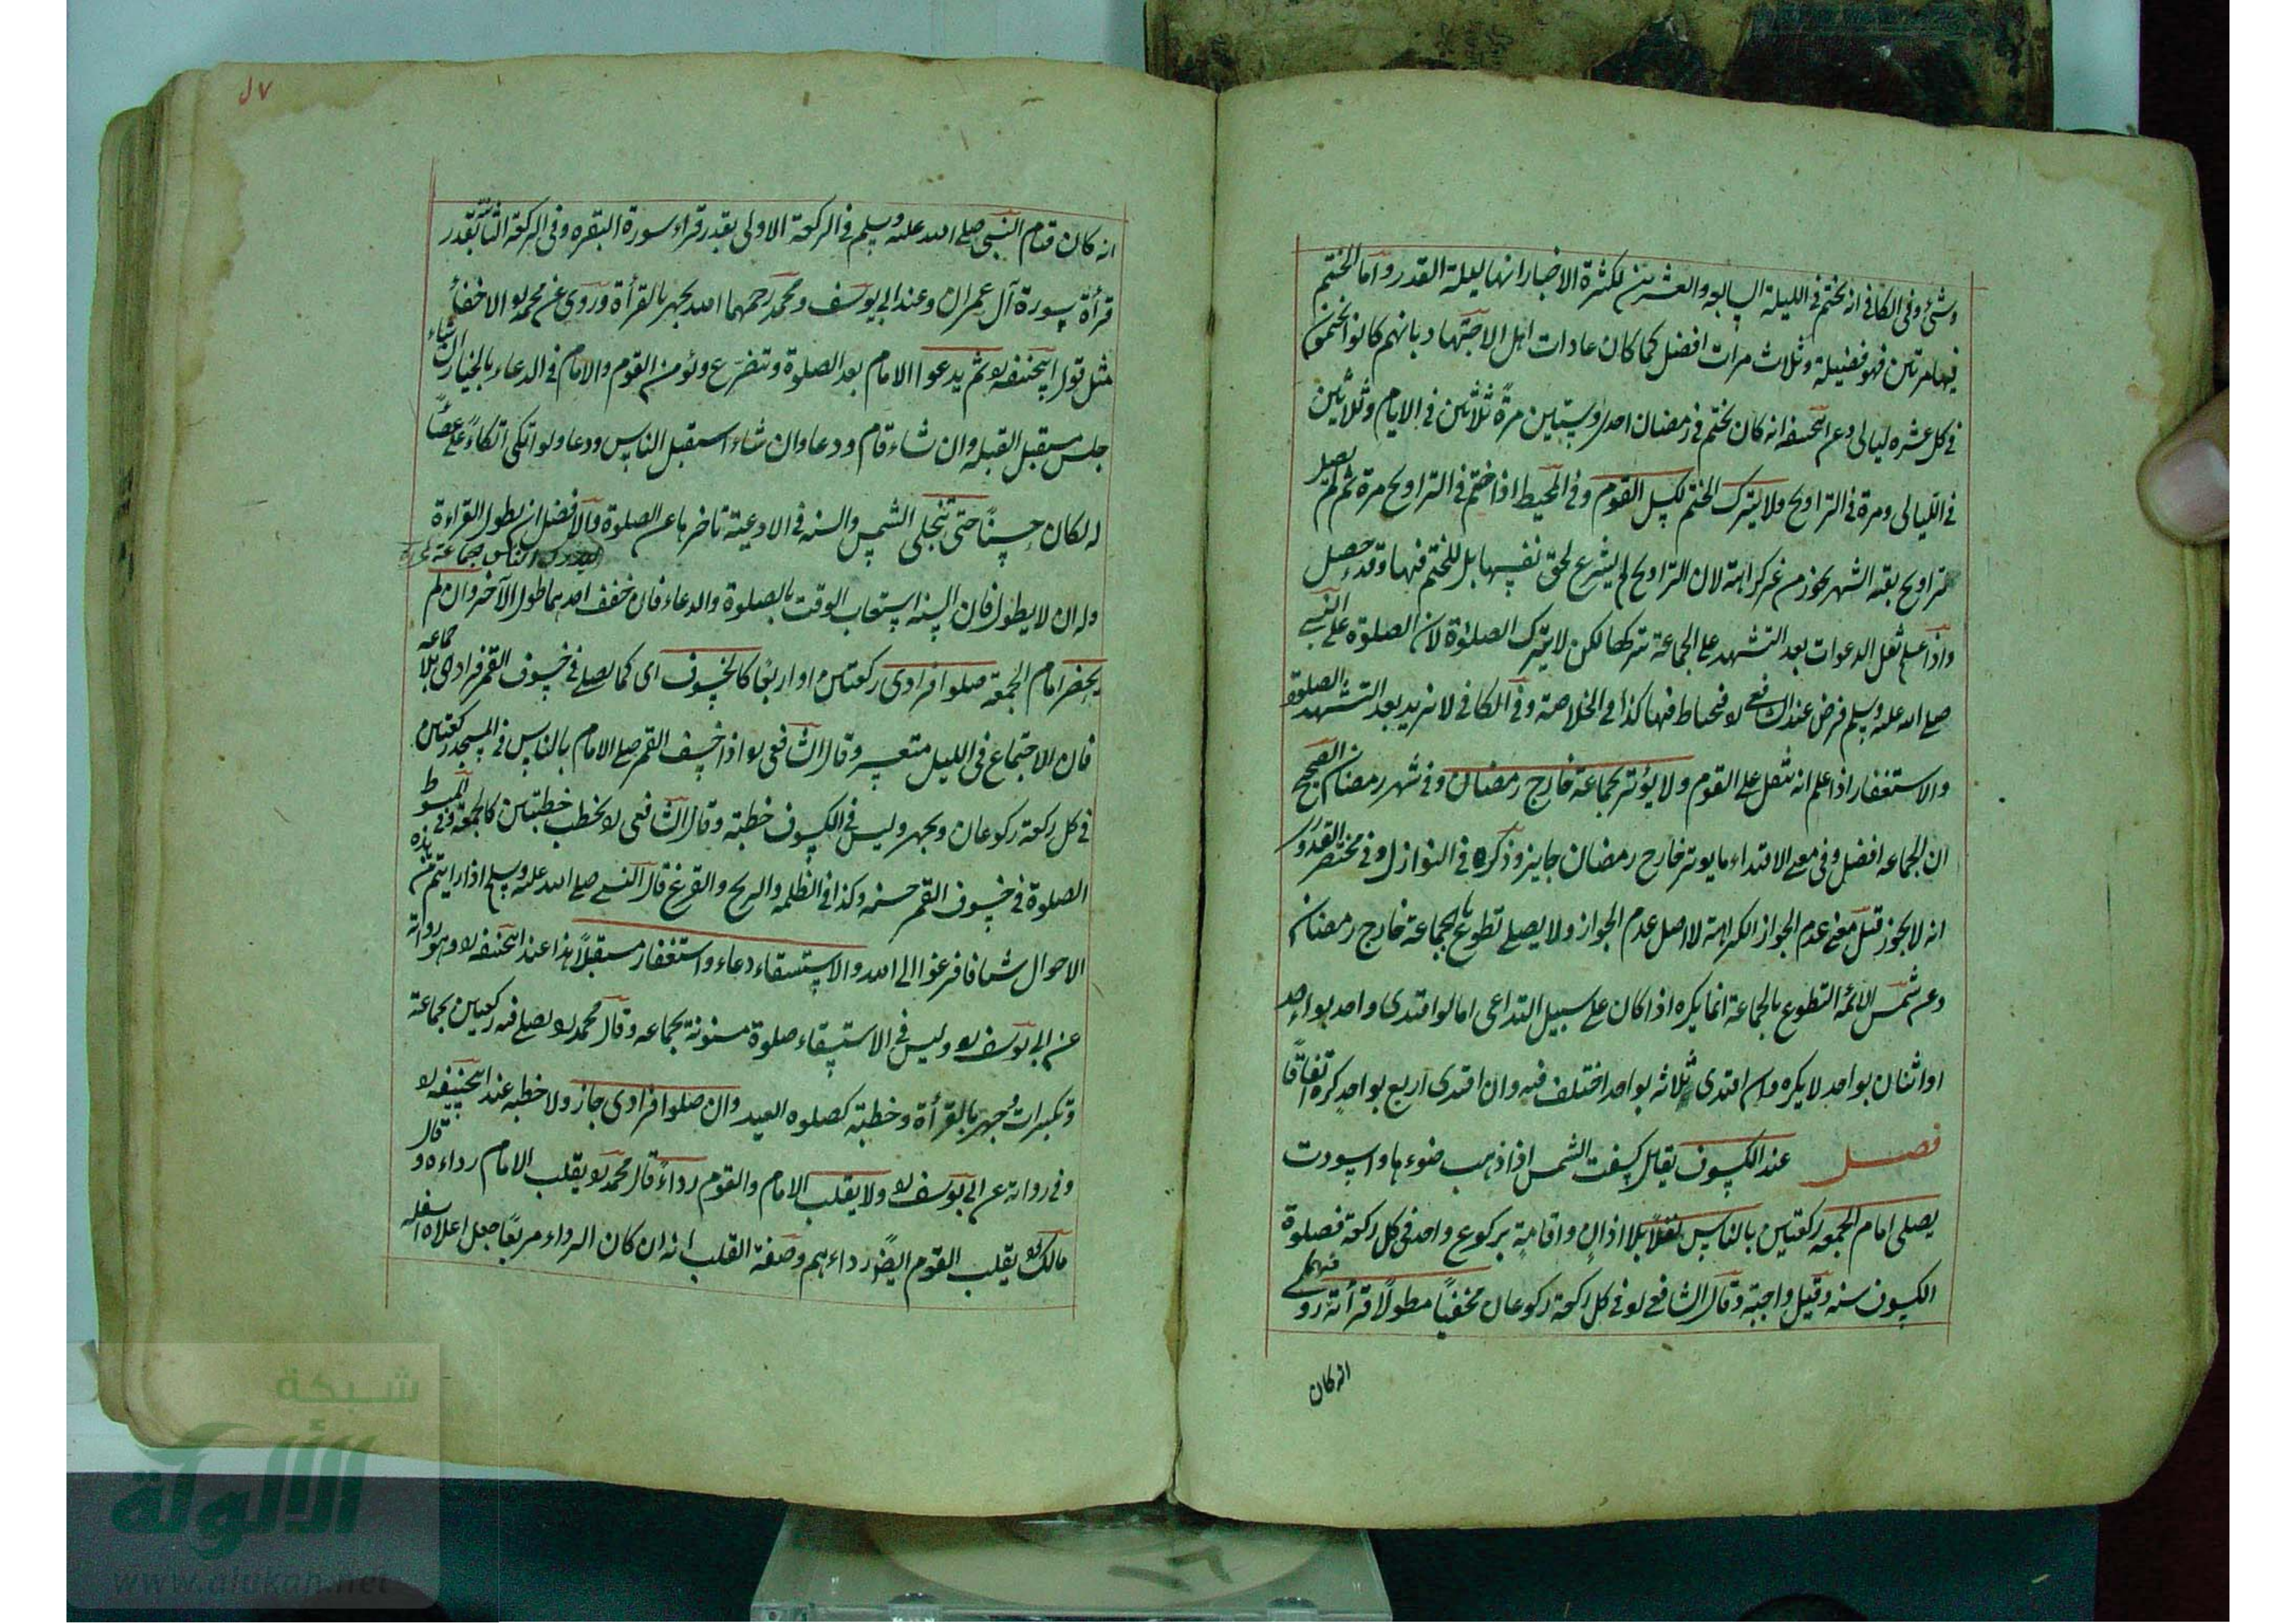 وشئ وفى الكافى انه يختم فى الليلة السابعة والعشرين لكثرة الاخبار انها ليلة القدر واما الختم
فيها مرتين فهو فضيلة وثلاث مرات افضل كما كان عادات اهل الاجتهاد بانهم كانوا يختمون
فى كل عشره ليالى وعن ابيحنيفه انه كان يختم فى رمضان احد وستين مرةً ثلاثين فى الايام وثلاثين
فى الليالى ومرة فى التراويح ولا يترك الختم لكسل القوم وفى المحيط اذا ختم فى التراويح مرة ثم لم يصل
تراويح بقية الشهر يجوز من غير كراهة لان التراويح لم يشرع لحق نفسها بل للختم فيها وقد حصل
واذا علم ثقل الدعوات بعد التشهد على الجماعة تتركها لكن لا يترك الصلوة لان الصلوة على النبى
صلى الله عليه وسلم فرض عند الشافعى فيحتاط فيها كذا فى الخلاصة وفى الكافى لا يزيد بعد التشهد الصلوة
والاستغفار اذا علم انه يثقل على القوم ولا يؤتر بجماعة خارج رمضان وفى شهر رمضان الصحيح
ان الجماعه افضل وفى معنى الاقتداء ما يوتر خارج رمضان جايز وذكره فى النوازل وفى مختصر القدورى
انه لا يجوز قيل معنى عدم الجواز الكراهة لا اصل عدم الجواز ولا يصلى تطوع بالجماعة خارج رمضان
وعن شمس الائمة التطوع بالجماعة انما يكره اذا كان على سبيل التداعى اما لو اقتدى واحد بواحد
او اثنان بواحد لا يكره وان اقتدى ثلاثه بواحد اختلف فيه وان اقتدى اربع بواحد كره اتفاقًا
فصل عند الكسوف يقال كسفت الشمس اذا ذهب ضوءها واسودت
يصلى امام الجمعه ركعتين بالناس نفلاً بلا اذان واقامة بركوع واحد فى كل ركعة فصلوة
الكسوف سنه وقيل واجبة وقال الشافعى فى كل ركعة ركوعان مخفيًا مطولاً قرأته فيهما روى
انه كان
٧ل
انه كان قيام النبى صلى الله عليه وسلم فى الركعة الاولى بقدر قراءة سورة البقره وفى الركعة الثانية بقدر
قرأة سورة آل عمران وعند ابى يوسف ومحمد رحمهما الله يجهر بالقرأة وروى عن محمد الاخفأ
مثل قول ابيحنيفه ثم يدعوا الامام بعد الصلوة ويتضرع ويؤمن القوم والامام فى الدعاء بالخيار ان شاء
جلس مستقبل القبله وان شاء قام ودعا وان شاء استقبل الناس ودعا ولو اتكى اتكاءً على عصًا
له لكان حسنًا حتى تنجلى الشمس والسنه فى الادعية تاخيرها عن الصلوة والافضل ان يطول القراءة
وله ان لا يطول فان السنه استيعاب الوقت بالصلوة والدعاء فان خفف احدهما طول الآخر وان لم
يحضر امام الجمعة صلوا فرادى ركعتين او اربعًا كالخسوف اى كما يصلى فى خسوف القمر فرادى بلا جماعه
فان الاجتماع فى الليل متعسر وقال الشافعى اذا خسف القمر صلى الامام بالناس فى المسجد ركعتين
فى كل ركعة ركوعان ويجهر وليس فى الكسوف خطبة وقال الشافعى يخطب خطبتين كالجمعة وفى المبسوط
الصلوة فى خسوف القمر حسنه وكذا فى الظلمه والريح والفزع قال النبى صلى الله عليه وسلم اذا رايتم من هذه
الاحوال شيأ فافزعوا الى الله والاستسقاء دعاء واستغفار مستقبلاً هذا عند ابيحنيفه وهو رواية
عن ابى يوسف وليس فى الاستسقاء صلوة مسنونة بجماعه وقال محمد يصلى فيه ركعتين بجماعة
وتكبيرات وجهر بالقرأة وخطبة كصلوة العيد وان صلوا فرادى جاز ولا خطبه عند ابيحنيفه
وفى رواية عن ابى يوسف ولا يقلب الامام والقوم رداءً قال محمد يقلب الامام رداءه وقال
مالك يقلب القوم ايضًا رداءهم وصفة القلب انه ان كان الرداء مربعًا جعل اعلاه اسفله
شبكة
الألوكة
www.alukah.net